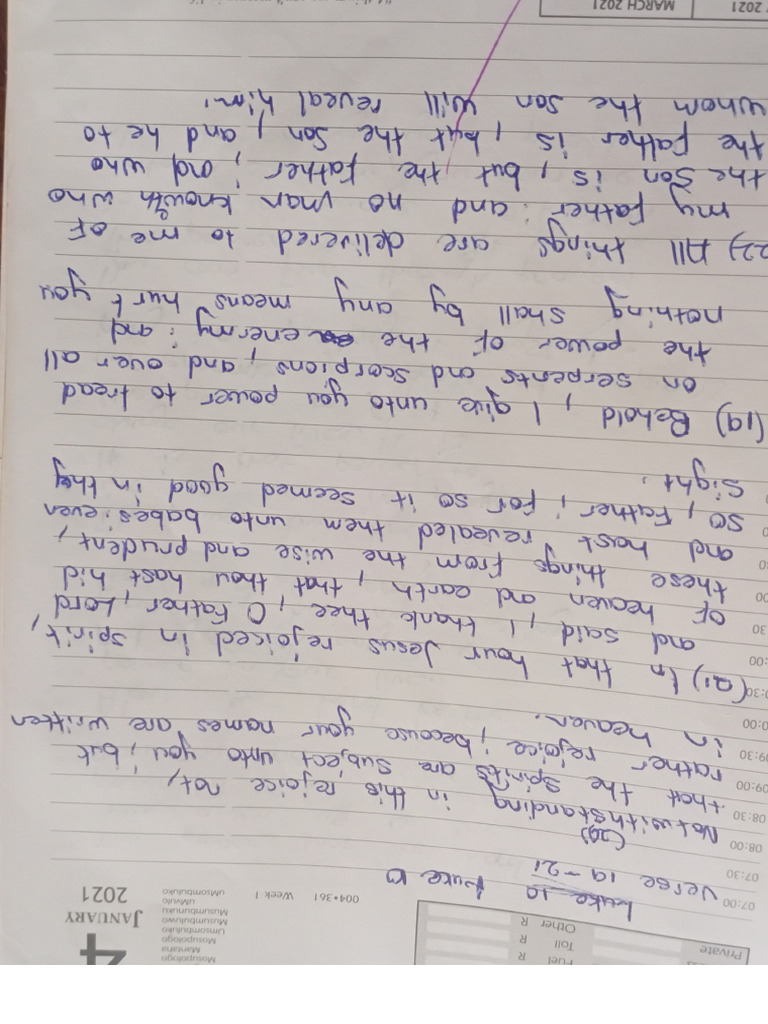 Private
Fuel R
Toll R
Other R
4
JANUARY
2021
Mosupologo
Mantaha
Mosupologo
Umsombuluko
Musumbuluwo
Musumbhunuku
uMvulo
uMsombuluko
004•361 Week 1
07:00 Luke 10 Luke 10
07:30 Verse 19-21
08:00 (20)
08:30 Notwithstanding in this rejoice not,
09:00 that the spirits are subject unto you; but
09:30 rather rejoice, because your names are written
in heaven.
(21) In that hour Jesus rejoiced in spirit,
and said, I thank thee, O Father, Lord
of heaven and earth, that thou hast hid
these things from the wise and prudent,
and hast revealed them unto babes: even
so, Father; for so it seemed good in they
sight.
(19) Behold, I give unto you power to tread
on serpents and scorpions, and over all
the power of the enermy: and
nothing shall by any means hurt you
22) All things are delivered to me of
my father: and no man knowth who
the Son is, but the father; and who
the father is, but the son, and he to
whom the son will reveal him.
2021 MARCH 2021